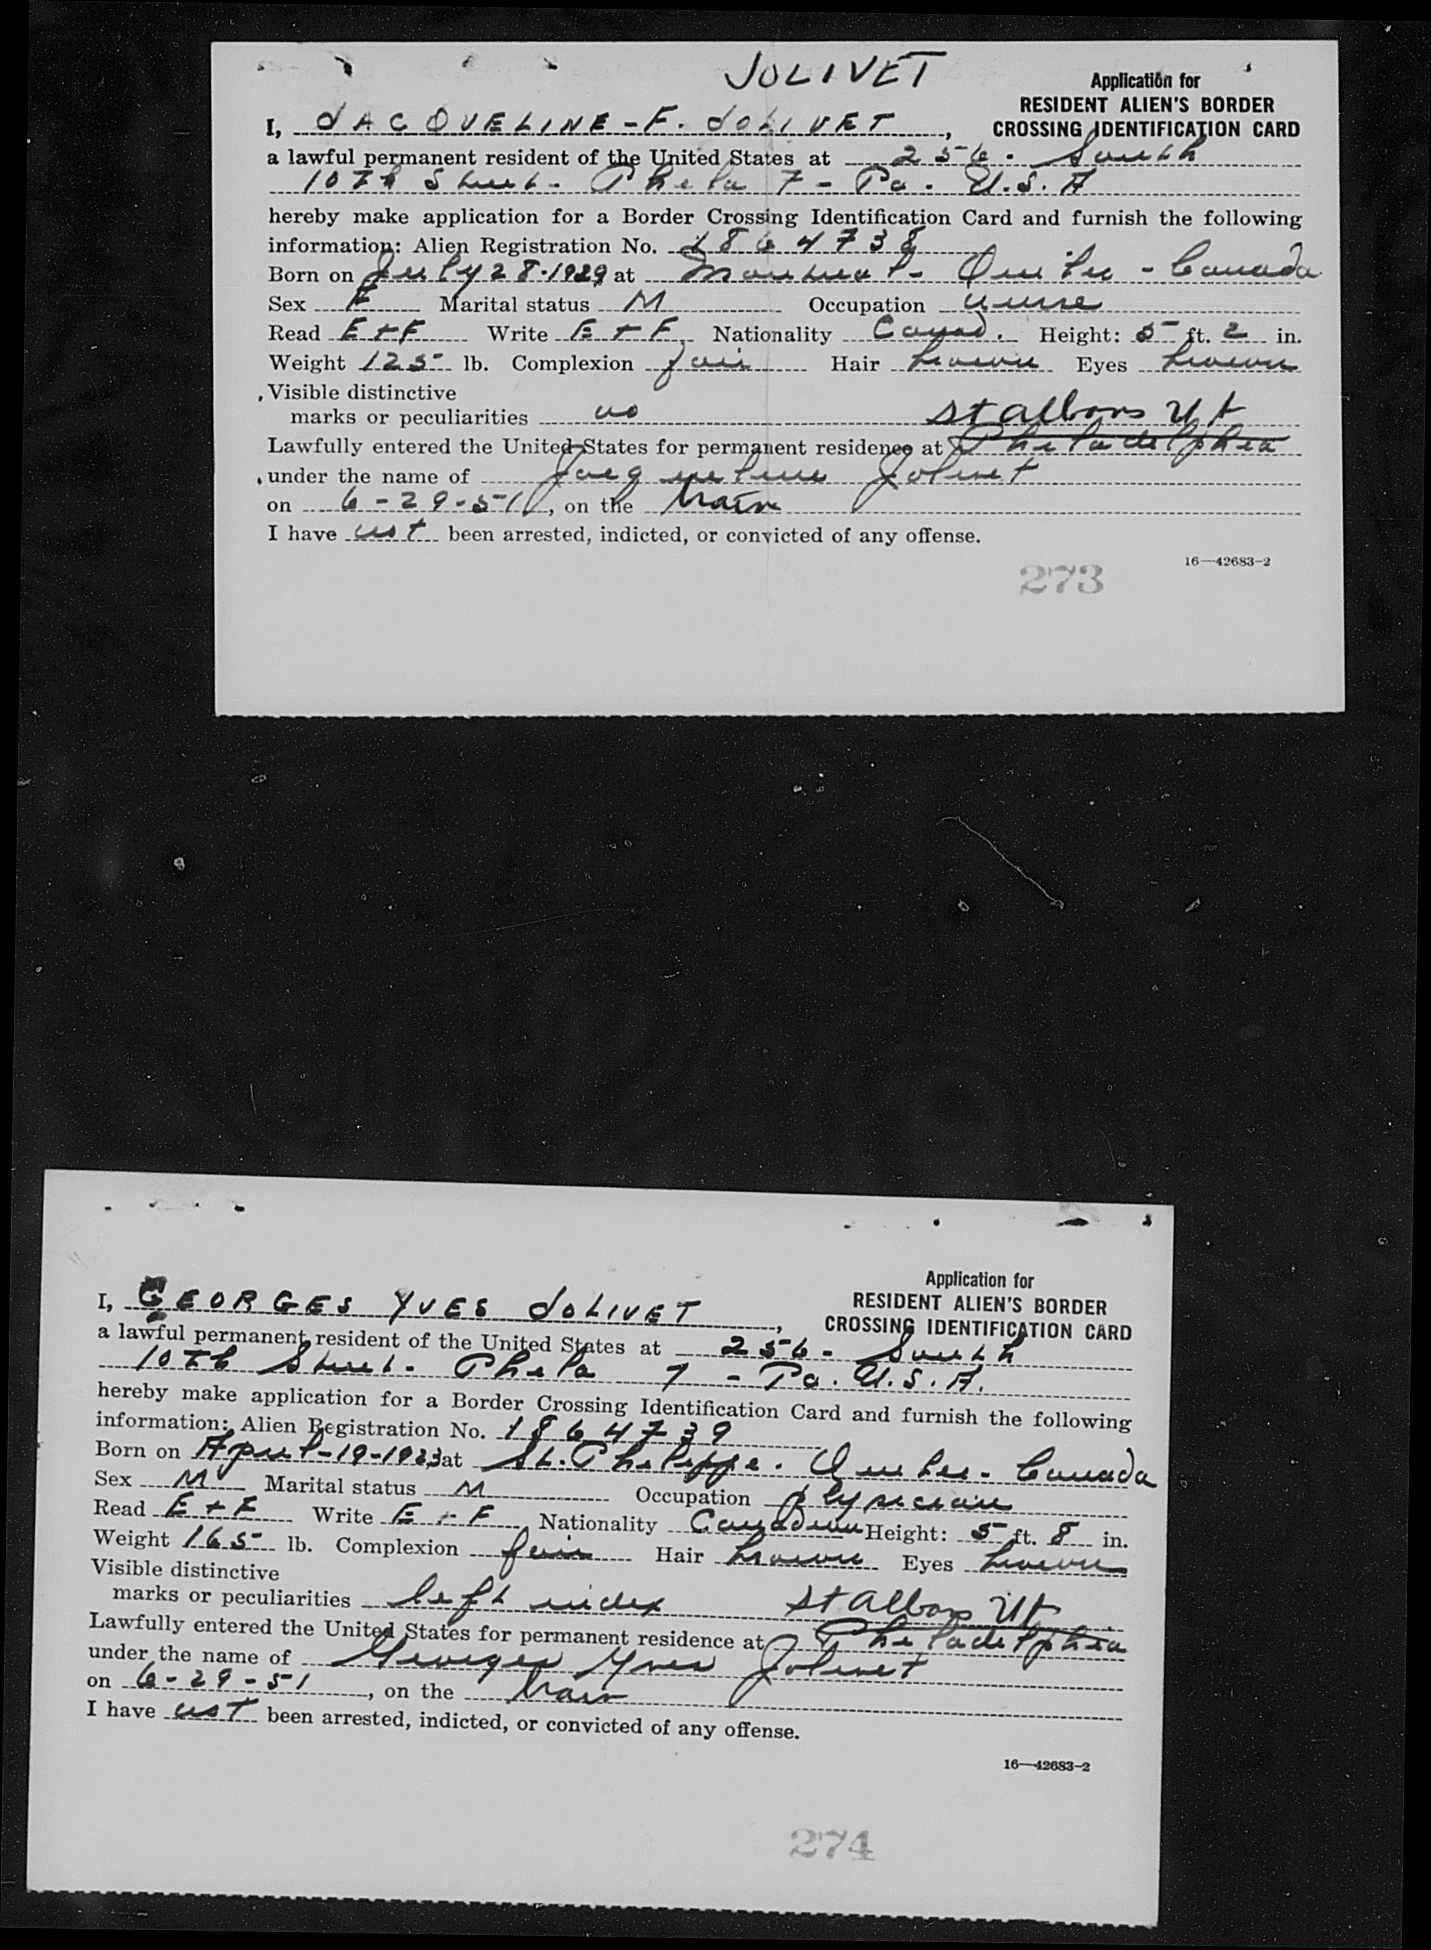 JOLIVET
Application for
RESIDENT ALIEN'S BORDER
CROSSING IDENTIFICATION CARD
I, JACQUELINE - F. JOLIVET,
a lawful permanent resident of the United States at 256 - South
10th Street - Phila 7 - Pa. U.S.A
hereby make application for a Border Crossing Identification Card and furnish the following
information: Alien Registration No. 1864738
Born on July 28-1929 at Montreal - Quebec - Canada
Sex F Marital status M Occupation nurse
Read E+F Write E+F Nationality Canad. Height: 5 ft. 2 in.
Weight 125 lb. Complexion fair Hair brown Eyes brown
Visible distinctive
marks or peculiarities no St Albans Vt
Lawfully entered the United States for permanent residence at Philadelphia
under the name of Jacqueline Jolivet
on 6-29-51, on the train
I have not been arrested, indicted, or convicted of any offense.
16—42683-2
273
Application for
RESIDENT ALIEN'S BORDER
CROSSING IDENTIFICATION CARD
I, GEORGES YVES JOLIVET,
a lawful permanent resident of the United States at 256 - South
10th Street - Phila 7 - Pa. U.S.A.
hereby make application for a Border Crossing Identification Card and furnish the following
information: Alien Registration No. 1864739
Born on April-19-1923 at St. Philippe - Quebec - Canada
Sex M Marital status M Occupation physician
Read E+F Write E+F Nationality Canadian Height: 5 ft. 8 in.
Weight 165 lb. Complexion fair Hair brown Eyes brown
Visible distinctive
marks or peculiarities left index St Albans Vt
Lawfully entered the United States for permanent residence at Philadelphia
under the name of Georges Yves Jolivet
on 6-29-51, on the train
I have not been arrested, indicted, or convicted of any offense.
16—42683-2
274